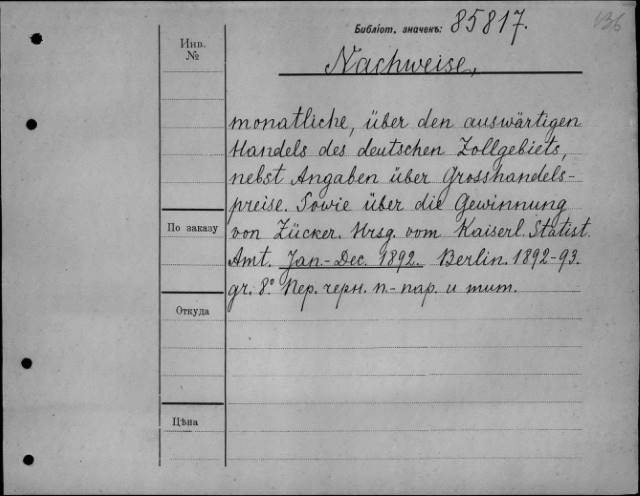 136
Библіот. значекъ: 85817.
Инв.
№
Nachweise,
monatliche, über den auswärtigen
Handels des deutschen Zollgebiets,
nebst Angaben über Grosshandels-
preise. Sowie über die Gewinnung
По заказу
von Zücker. Hrsg. vom Kaiserl. Statist.
Amt. Jan.-Dec. 1892. Berlin. 1892-93.
gr. 8° Пер. черн. п.-пар. и тит.
Откуда
Цѣна